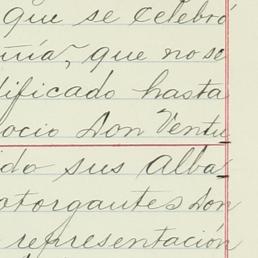 que se celebró
ñía, que no se
dificado hasta
ocio Don Ventu
ido sus alba
otorgantes Don
representación